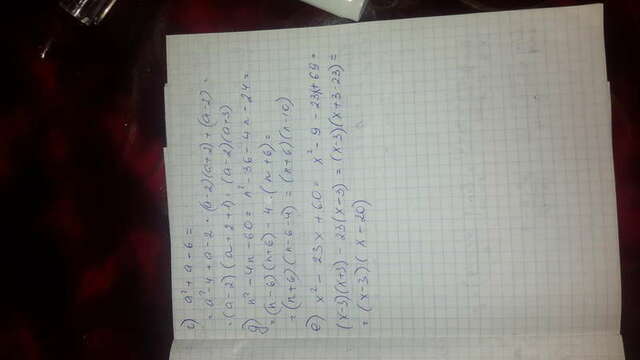 c) a² + a - 6 =
= a² - 4 + a - 2 = (a - 2)(a + 2) + (a - 2) =
= (a - 2)(a + 2 + 1) = (a - 2)(a + 3)
g) n² - 4n - 60 = n² - 36 - 4n - 24 =
= (n - 6)(n + 6) - 4 · (n + 6) =
= (n + 6)(n - 6 - 4) = (n + 6)(n - 10)
e) x² - 23x + 60 = x² - 9 - 23x + 69 =
(x - 3)(x + 3) - 23(x - 3) = (x - 3)(x + 3 - 23) =
= (x - 3)(x - 20)